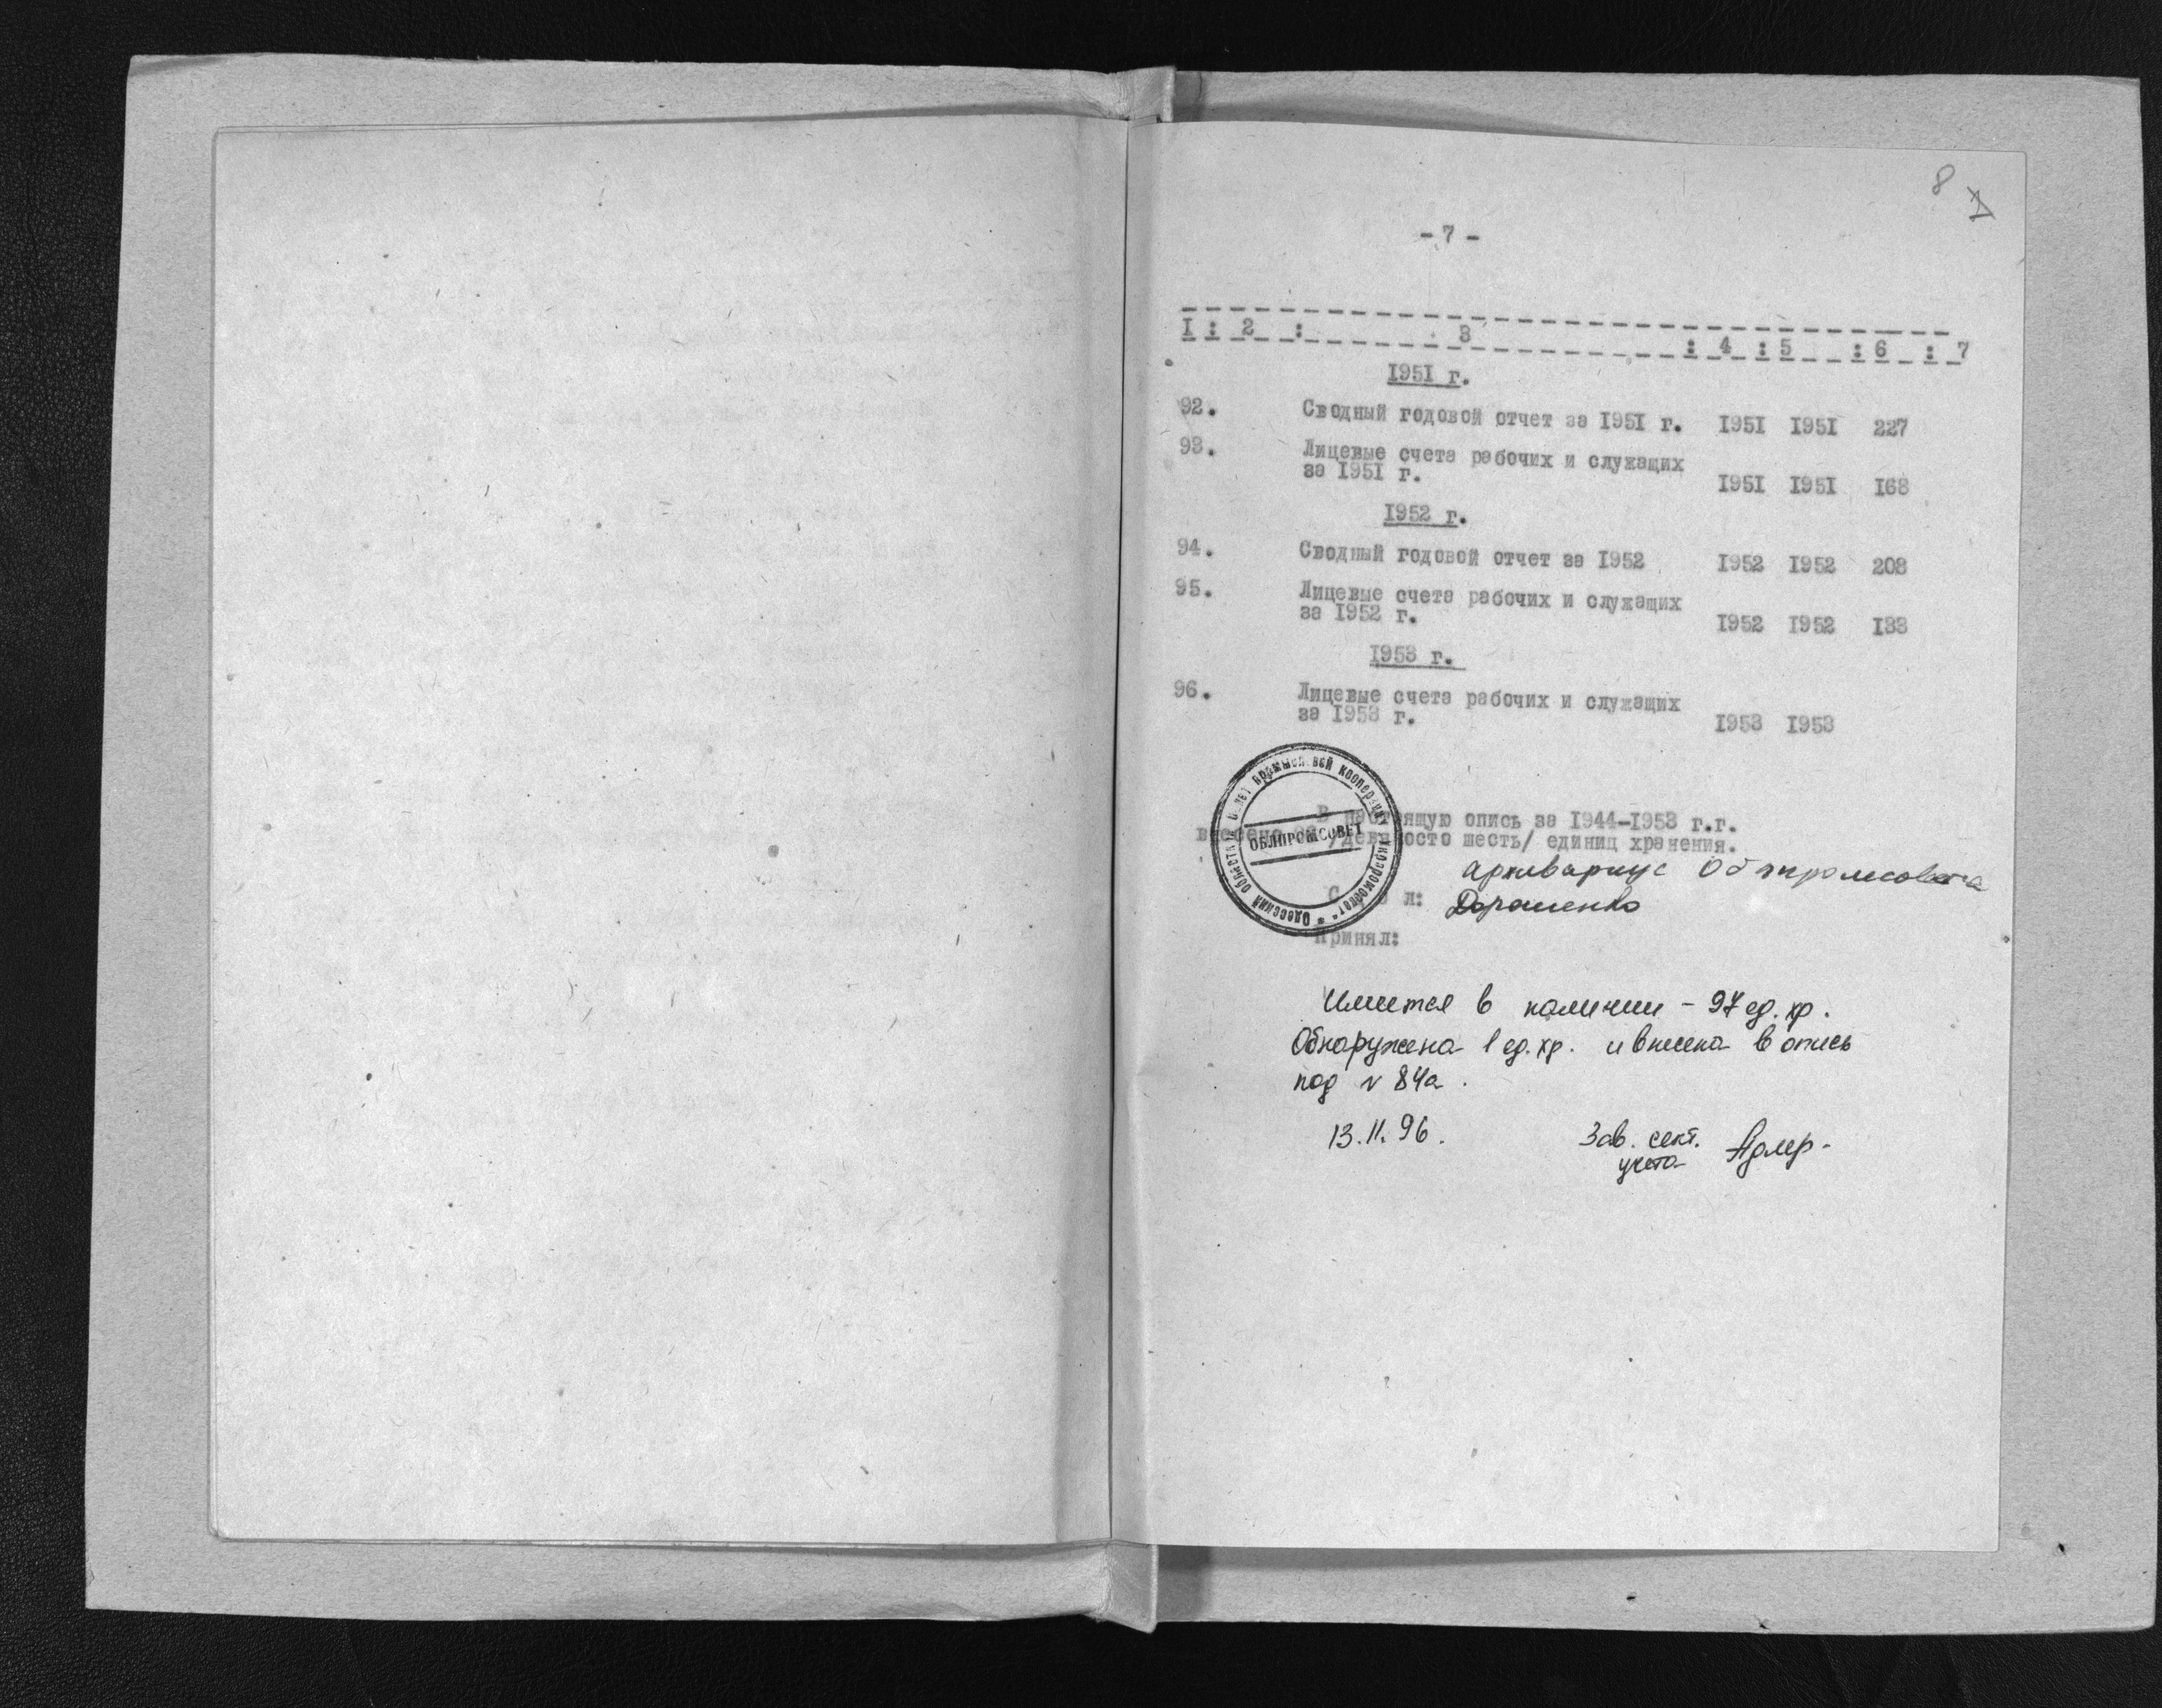 8
- 7 -
I : 2 : 3 : 4 : 5 : 6 : 7
I95I г.
92. Сводный годовой отчет за I95I г. I95I I95I 227
93. Лицевые счета рабочих и служащих
за I95I г. I95I I95I I68
I952 г.
94. Сводный годовой отчет за I952 I952 I952 208
95. Лицевые счета рабочих и служащих
за I952 г. I952 I952 I33
I953 г.
96. Лицевые счета рабочих и служащих
за I953 г. I953 I953
В настоящую опись за I944-I953 г.г.
внесено /девяносто шесть/ единиц хранения.
ОБЛПРОМСОВЕТ
архивариус Облпромсовета
Сдал: Дорошенко
Принял:
Имеется в наличии - 97 ед. хр.
Обнаружена 1 ед. хр. и внесена в опись
под N 84а.
13.11.96. Зав. сект. Адлер
учета